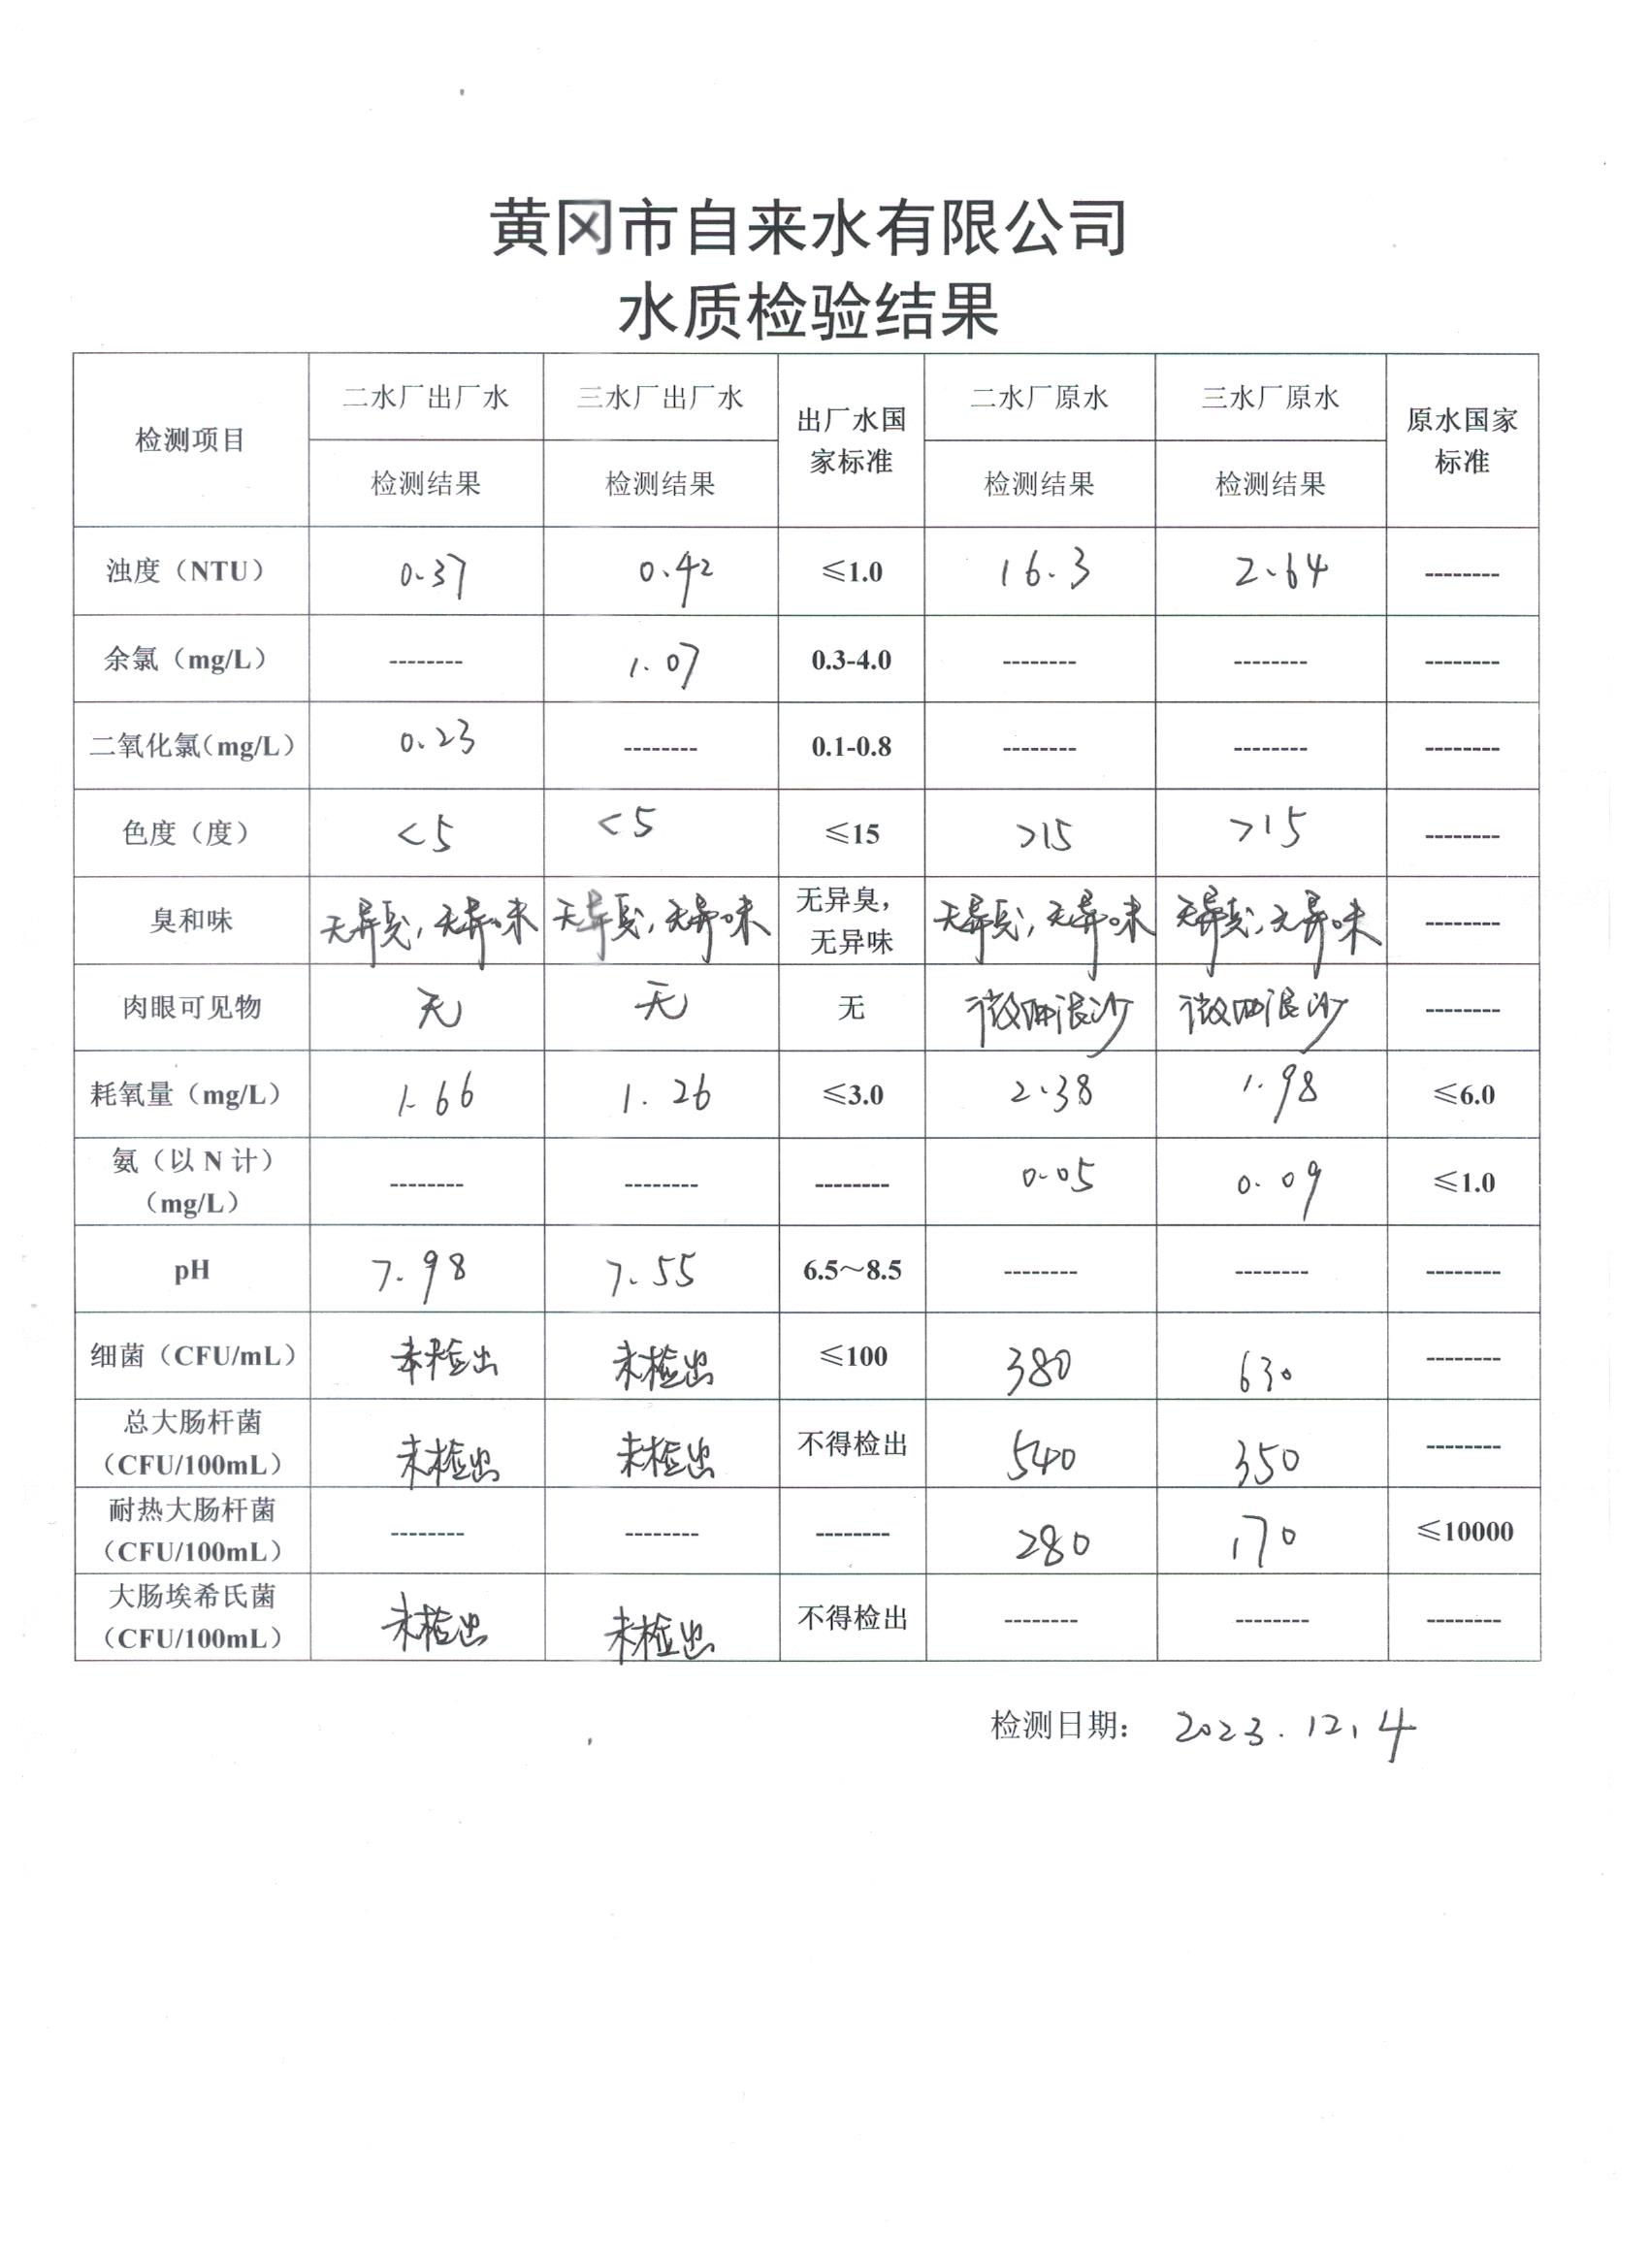 黄冈市自来水有限公司
水质检验结果
检测项目 二水厂出厂水 三水厂出厂水 出厂水国家标准 二水厂原水 三水厂原水 原水国家标准
检测结果 检测结果 检测结果 检测结果
浊度（NTU） 0.37 0.42 ≤1.0 16.3 2.64 --------
余氯（mg/L） -------- 1.07 0.3-4.0 -------- -------- --------
二氧化氯（mg/L） 0.23 -------- 0.1-0.8 -------- -------- --------
色度（度） <5 <5 ≤15 >15 >15 --------
臭和味 无异臭,无异味 无异臭,无异味 无异臭，无异味 无异臭,无异味 无异臭,无异味 --------
肉眼可见物 无 无 无 微细泥沙 微细泥沙 --------
耗氧量（mg/L） 1.66 1.26 ≤3.0 2.38 1.98 ≤6.0
氨（以 N 计）（mg/L） -------- -------- -------- 0.05 0.09 ≤1.0
pH 7.98 7.55 6.5～8.5 -------- -------- --------
细菌（CFU/mL） 未检出 未检出 ≤100 380 630 --------
总大肠杆菌（CFU/100mL） 未检出 未检出 不得检出 540 350 --------
耐热大肠杆菌（CFU/100mL） -------- -------- -------- 280 170 ≤10000
大肠埃希氏菌（CFU/100mL） 未检出 未检出 不得检出 -------- -------- --------
检测日期： 2023.12.4